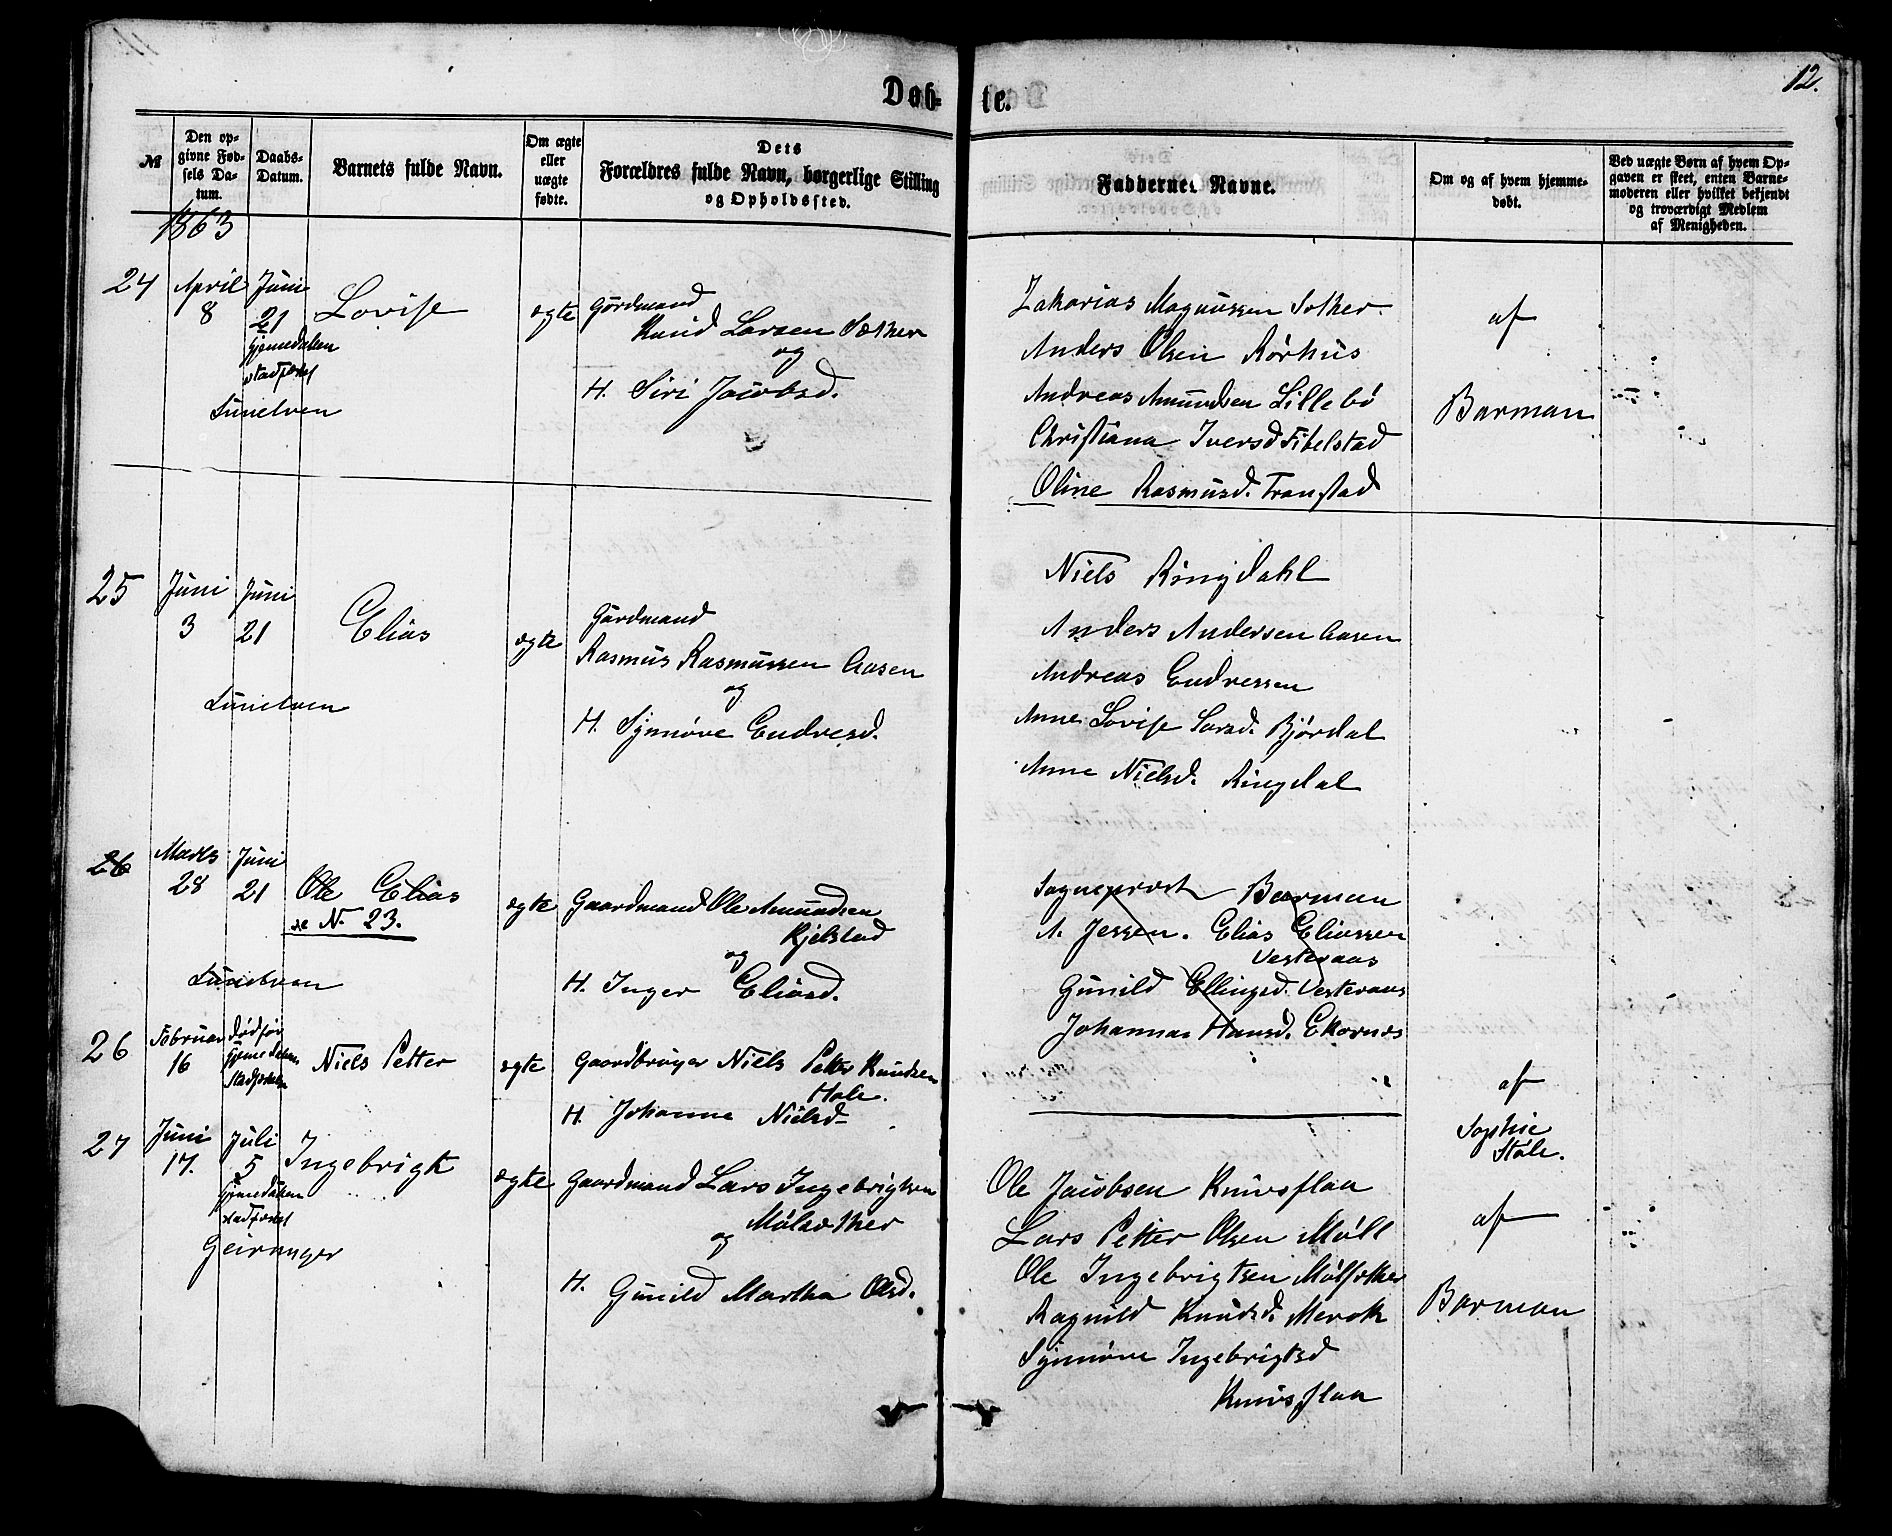 Døb-te.
12.
№
Den opgivne Fødsels Datum.
Daabs-Datum.
Barnets fulde Navn.
Om ægte eller uægte fødte.
Dets Forældres fulde Navn, borgerlige Stilling og Opholdssted.
Faddernes Navne.
Om og af hvem hjemmedøbt.
Ved uægte Børn af hvem Opgaven er skeet, enten Barnemoderen eller hvilket bekjendt og troværdigt Medlem af Menigheden.
1863
24 April 8 Juni 21 Lovise ægte Gårdmand
Hjemedøben
stadfæst
Sunelven
Knud Larsen Sæther
og
H. Siri Jacobsd.
Zakarias Magnussen Sæther
Anders Olsen Rørhus
Andreas Amundsen Lillebø
Christiana Iversd Fibelstad
Oline Rasmusd. Tronstad
af
Barman
25 Juni 3 Juni 21 Elias ægte Gårdmand
Sunelven
Rasmus Rasmussen Aasen
og
H. Synnøve Endresd.
Niels Ringdahl
Anders Andersen Aasen
Andreas Endressen
Anne Lovise Larsd. Bjørdal
Anne Nielsd. Ringdal
26 Marts 28 Juni 21 Ole Elias
se N. 23.
Sunelven
ægte Gaardmand Ole Amundsen
Kjelstad
og
H. Inger Eliasd.
Sogneprest Barman
A. Jessen. Elias Eliassen
Vesteraas
Gunild Ellingsd. Vesteraas
Johanna Hansd. Ekornæs
26 Februar 16 død før
Hjemedøbens
Stadfæstelse
Niels Petter ægte Gaardbruger Niels Petter Knudsen
Hole.
H. Johanne Nielsd
af
Sophie
Hole.
27 Juni 17. Juli 5 Ingebrigt ægte Gaardmand Lars Ingebrigtsen
Hjemedøben
stadfæst
Geiranger
Mølsæther
og
H. Gunild Martha Olsd.
Ole Jacobsen Knivsflaa
Lars Petter Olsen Møll
Ole Ingebrigtsen Mølsæther
Ragnild Knudsd. Merok
Synnøve Ingebrigtsd
Knivsflaa
af
Barman